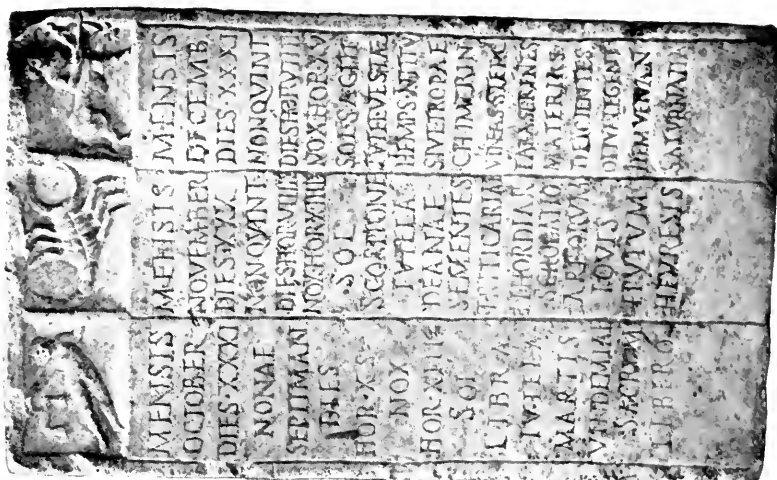 MENSIS
OCTOBER
DIES·XXXI
NONAE
SEPTIMAN
DIES
HOR·X·S
NOX
SOL
LIBRA
TVTELA
MARTIS
VINDEMIA
SACRVM
LIBERO
MENSIS
NOVEMBER
DIES·XXX
NON·QVINT
DIES·HOR·VIIIIS
NOX·HOR·XIIIIS
SOL
SCORPIONE
TVTELA
DEANAE
SEMENTES
TRITICARIAE
ET·HORDIAR
SCROBATIO
ARBORVM
IOVIS
EPVLVM
HEVRESIS
MENSIS
DECEMB
DIES·XXXI
NON·QVINT
DIES·HOR·VIIII
NOX·HOR·XV
SOL·SAGIT
TVTEL·VESTAE
HIEMPS·INITIV
SIVE·TROPAE
CHIMERIN
VINEAS·STERC
FABA·SERENTES
MATERIAS
DEICIENTES
OLIVA·LEGENT
ITEM·VENAN
SATVRNALIA